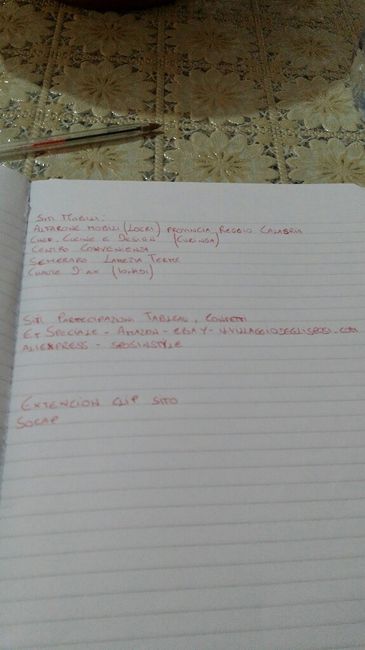 SITI MOBILI:
ALTAMONE MOBILI (LOCRI) PROVINCIA REGGIO CALABRIA
CUCINE E DESIGN (CURINGA)
CENTRO CONVENIENZA
SEMERARO LAMEZIA TERME
(IONADI)
SITI PARTECIPAZIONI TABLEAU, CONFETTI
E+ SPECIALE - AMAZON - EBAY - ILVILLAGGIODEGLISPOSI.COM
ALIEXPRESS - SPOSINSTYLE
EXTENCION CLIP SITO
SOCAP